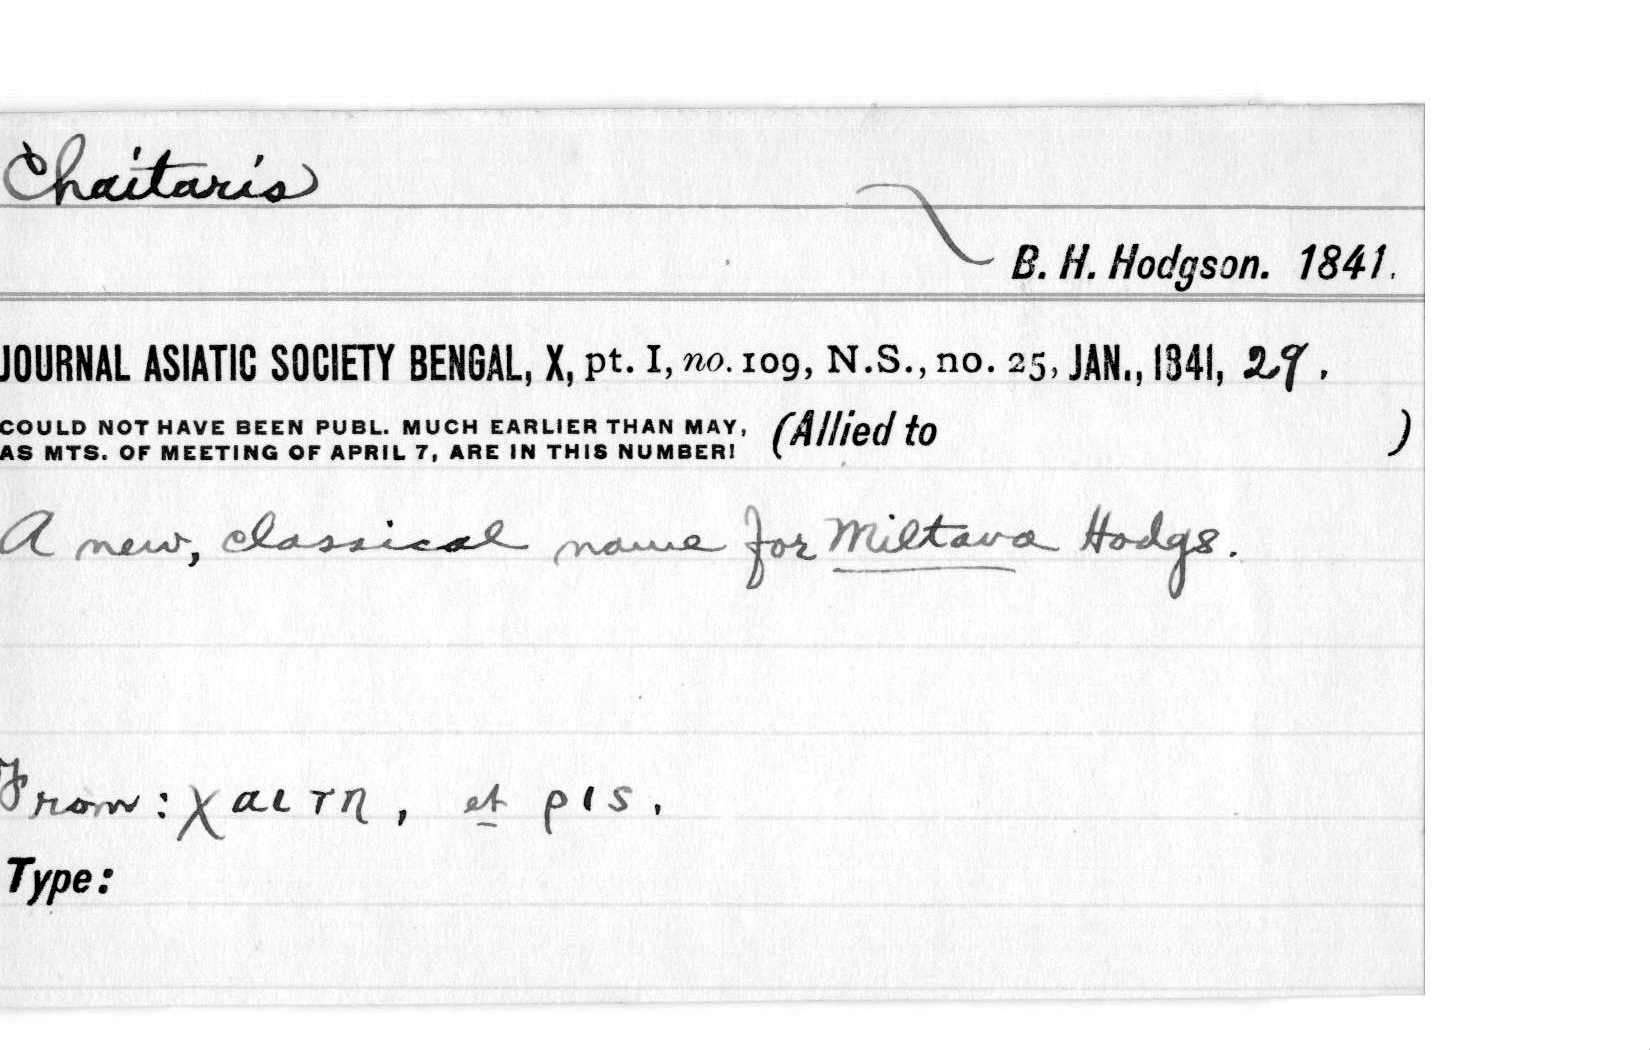 Chaitaris
B. H. Hodgson. 1841.
JOURNAL ASIATIC SOCIETY BENGAL, X, pt. I, no. 109, N.S., no. 25, JAN., 1841, 29.
COULD NOT HAVE BEEN PUBL. MUCH EARLIER THAN MAY,
AS MTS. OF MEETING OF APRIL 7, ARE IN THIS NUMBER!
(Allied to )
A new, classical name for Miltava Hodgs.
From: χαιτη, et ρις.
Type: